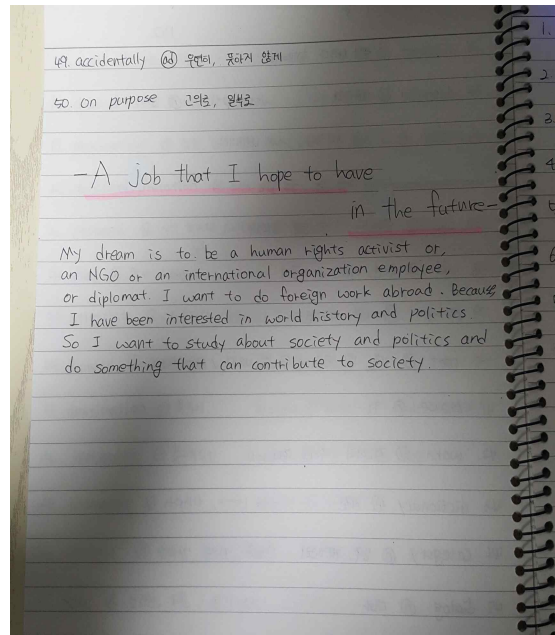 49. accidentally ad 우연히, 뜻하지 않게
50. on purpose 고의로, 일부로
- A job that I hope to have
in the future -
My dream is to be a human rights activist or,
an NGO or an international organization employee,
or diplomat. I want to do foreign work abroad. Because,
I have been interested in world history and politics
So I want to study about society and politics and
do something that can contribute to society.
1.
2
3
4